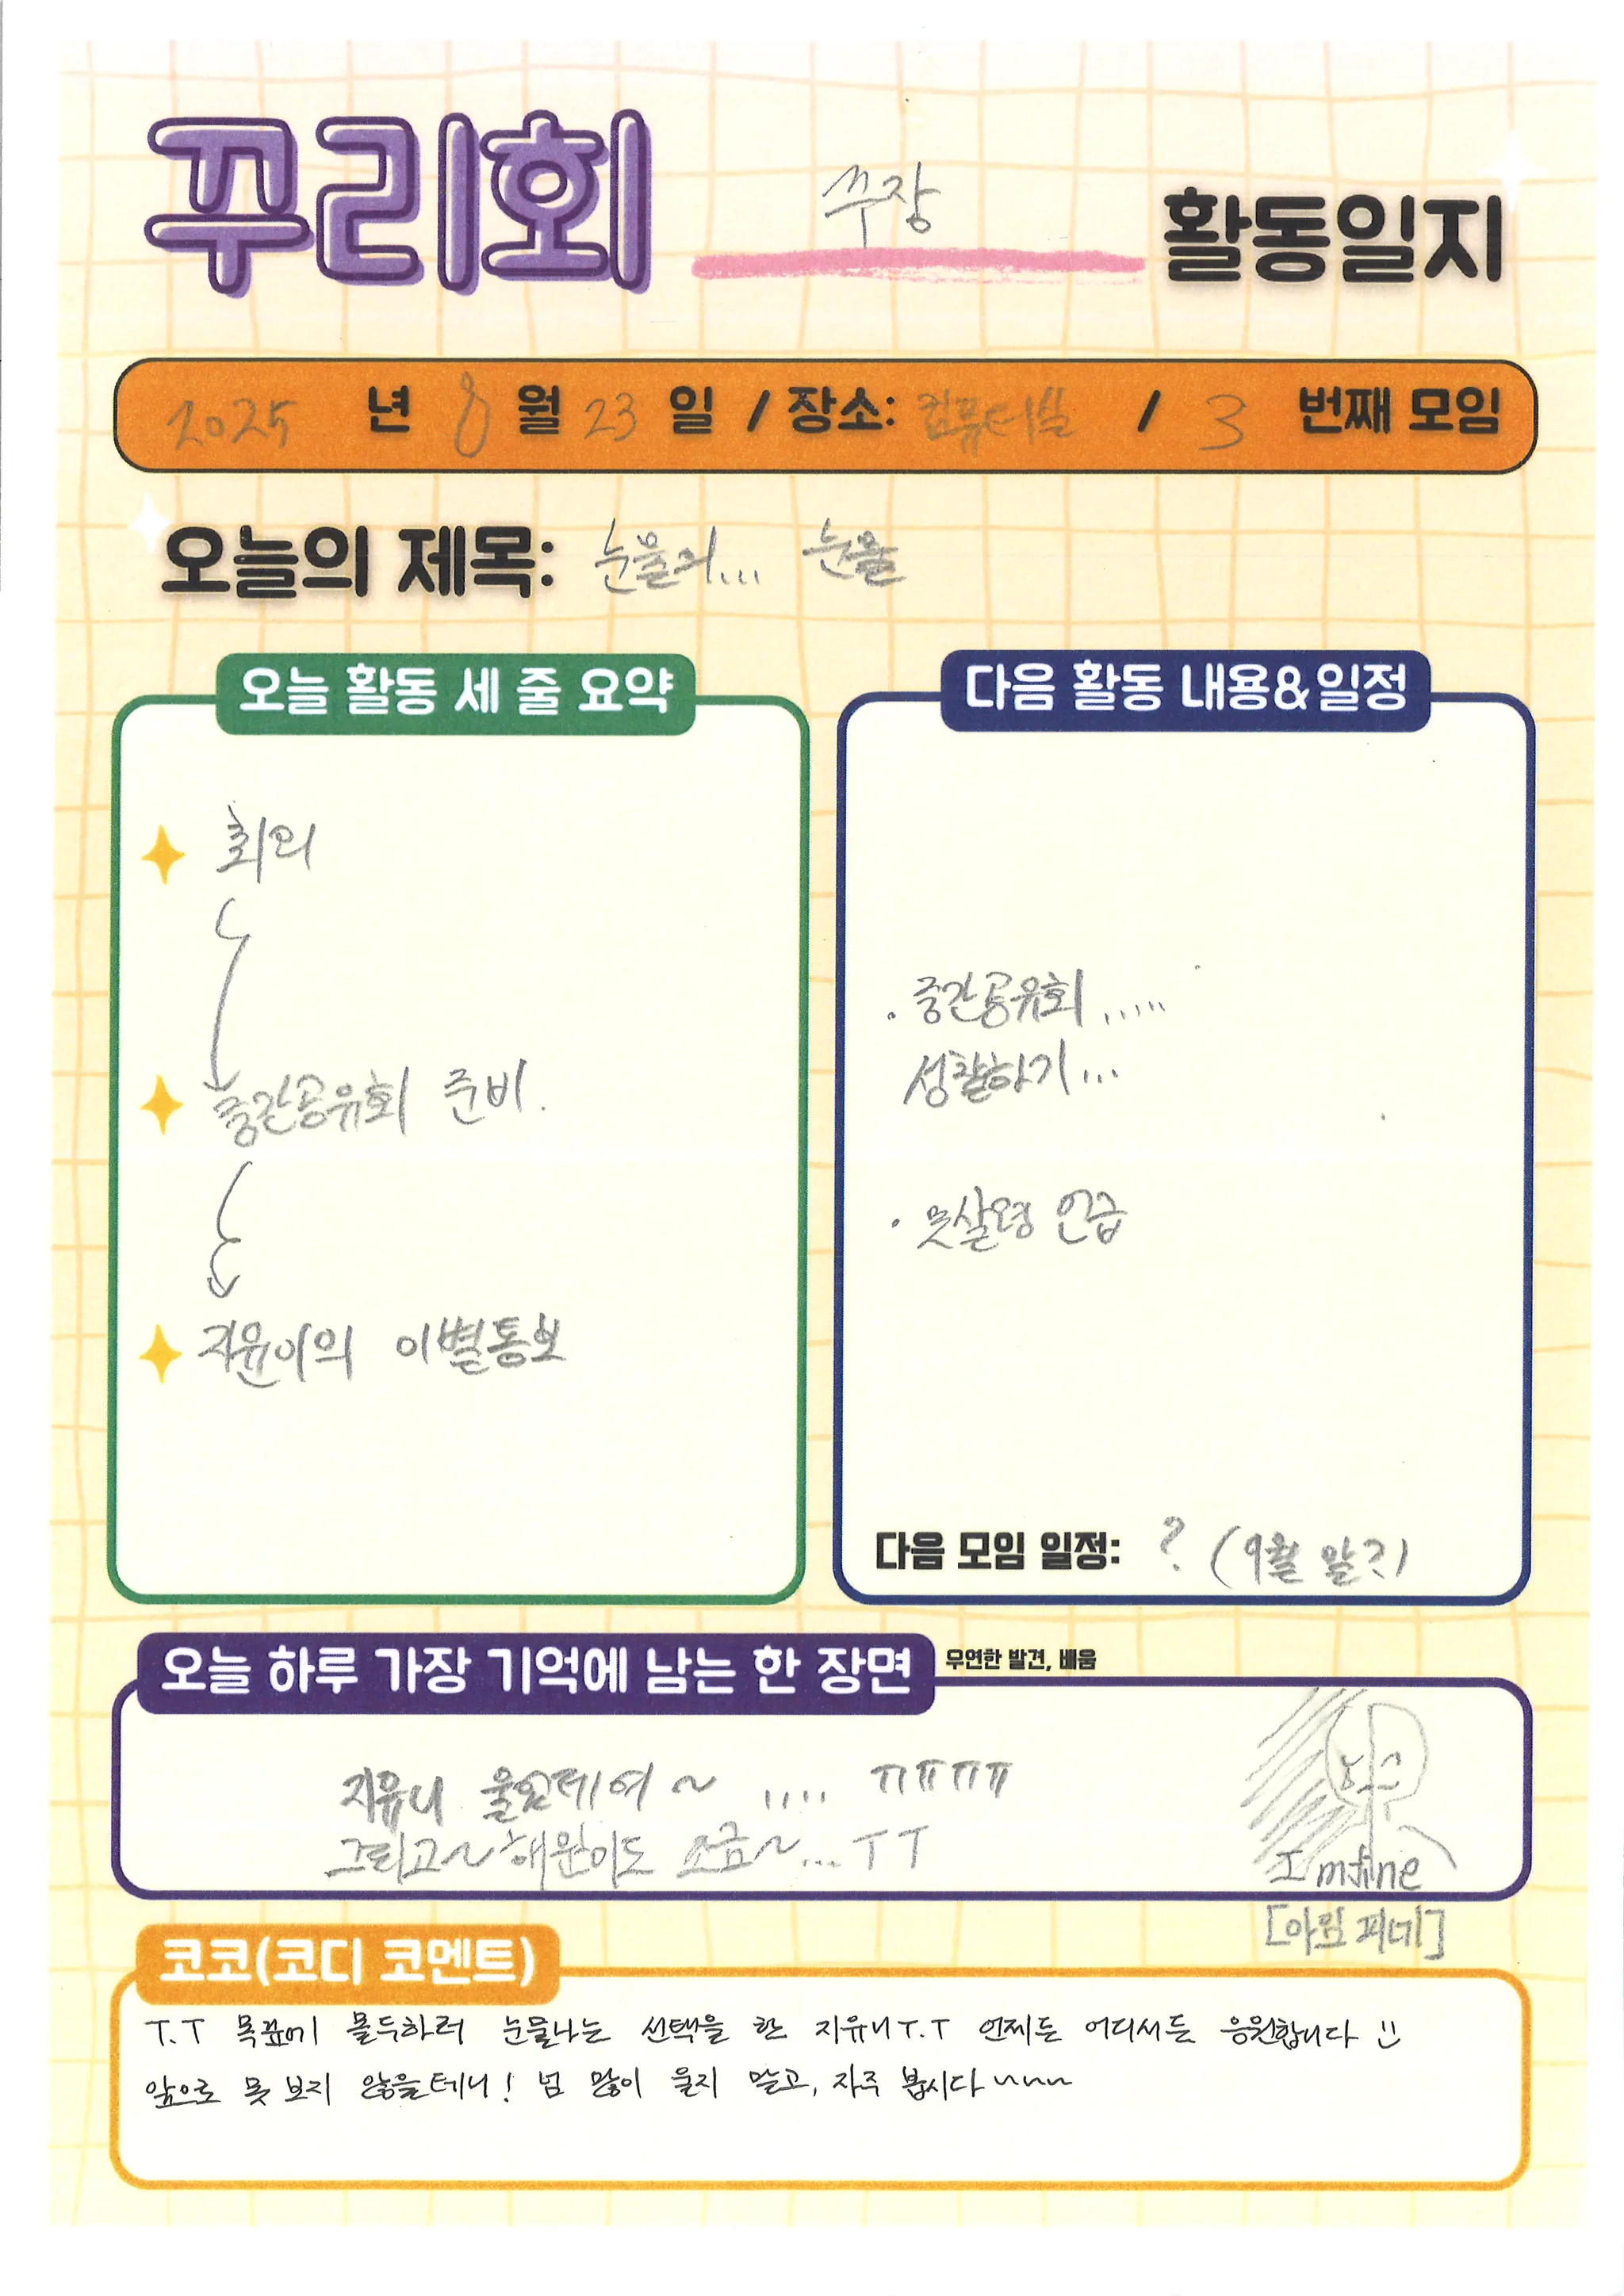 꾸리회 쑤장 활동일지
2025 년 8 월 23 일 / 장소: 컴퓨터실 / 3 번째 모임
오늘의 제목: 눈물의... 눈물
오늘 활동 세 줄 요약
회의
중간공유회 준비.
지윤이의 이별통보
다음 활동 내용&일정
· 중간공유회 .....
성찰하기...
· 못살영 언급
다음 모임 일정: ? (9월 말?)
오늘 하루 가장 기억에 남는 한 장면 우연한 발견, 배움
지유니 울었데여~ .... ㅠㅠㅠㅠ
그리고~ 해원이도 조금~...ㅜㅜ
I'm fine
[아임 파네]
코코(코디 코멘트)
T.T 목표에 몰두하러 눈물나는 선택을 한 지유니T.T 언제든 어디서든 응원합니다 :)
앞으로 못 보지 않을테니! 넘 많이 울지 말고, 자주 봅시다~~~